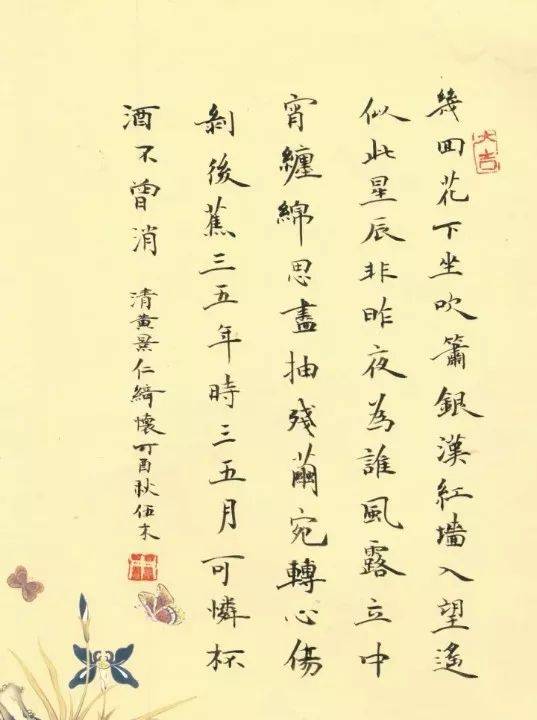 幾回花下坐吹簫銀漢紅墻入望遙
似此星辰非昨夜為誰風露立中
宵纏綿思盡抽殘繭宛轉心傷
剝後蕉三五年時三五月可憐杯
酒不曾消
清黄景仁綺懷丁酉秋伍木
大吉